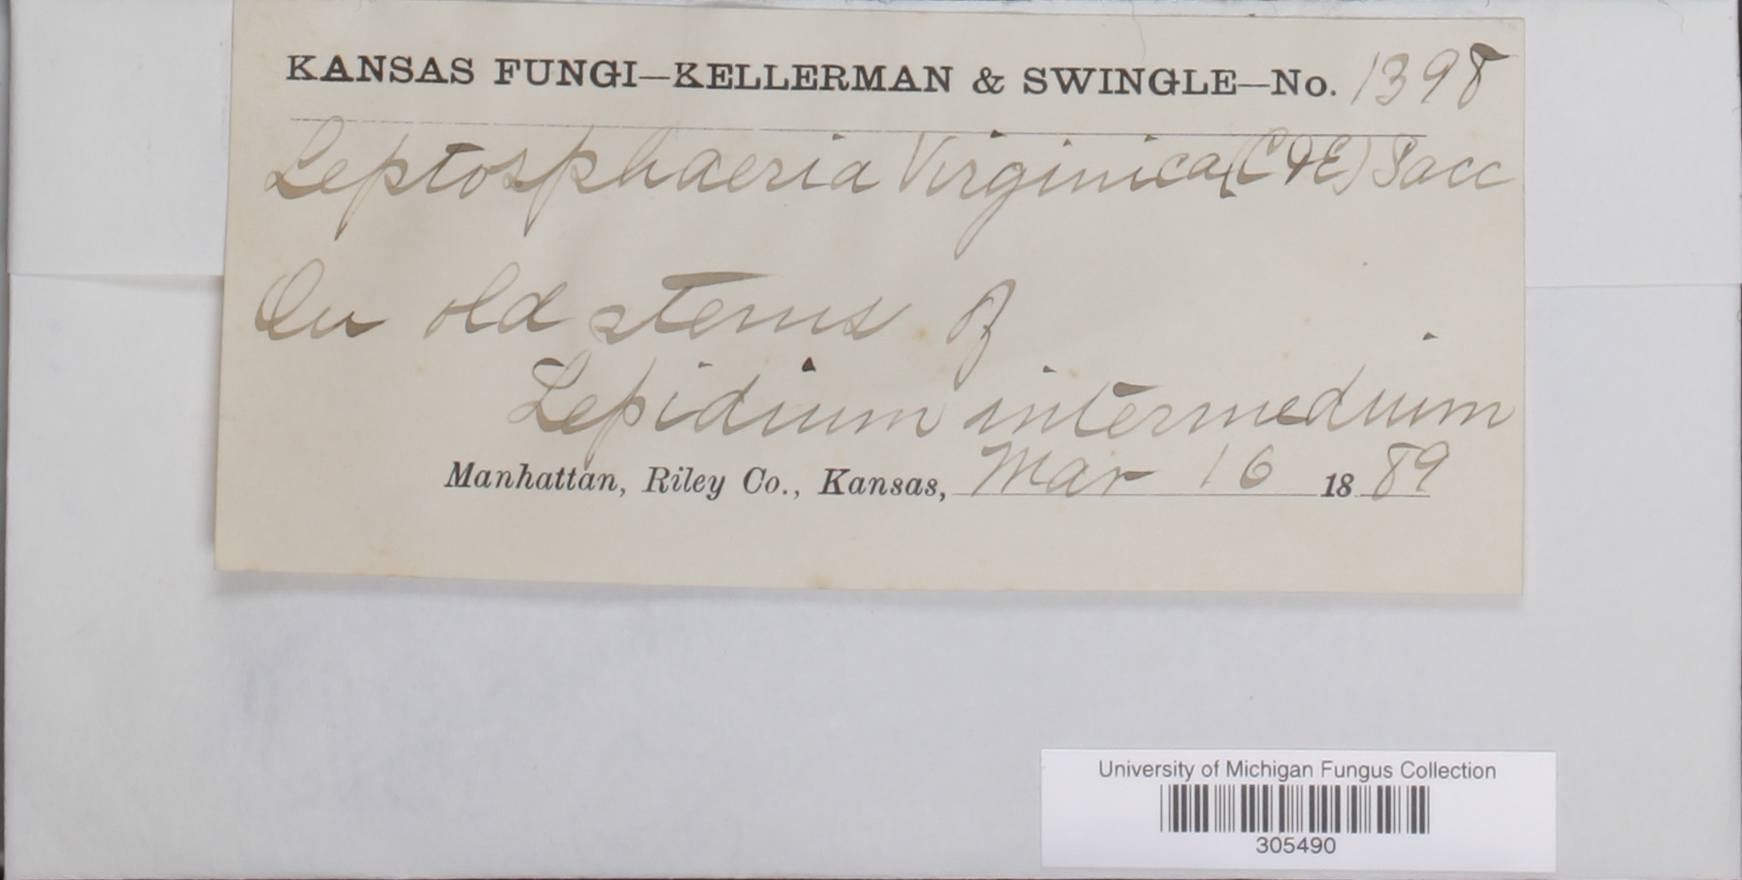 KANSAS FUNGI—KELLERMAN & SWINGLE—No. 1398
Leptosphaeria Virginica (C&E) Sacc
On old stems of
Lepidium intermedium
Manhattan, Riley Co., Kansas, Mar 16 1889
University of Michigan Fungus Collection
305490